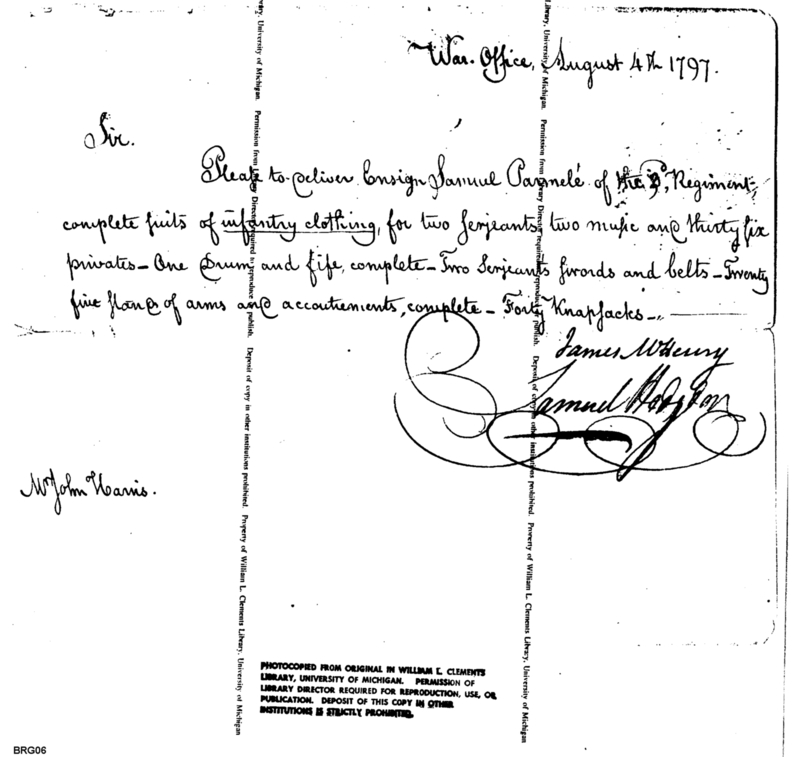 War Office, August 4th 1797.
Sir.
Please to deliver Ensign Samuel Parmelé of the 3d, Regiment,
complete suits of infantry clothing, for two serjeants, two music and thirty six
privates — One Drum and fife, complete — Two Serjeants swords and belts — Twenty
five stand of arms and accoutrements, complete — Forty Knapsacks —
James McHenry
Samuel Hodgdon
Mr John Harris.
Library, University of Michigan. Permission from Library Director required to reproduce or publish. Deposit of copy in other institutions prohibited. Property of William L. Clements Library, University of Michigan
Library, University of Michigan. Permission from Library Director required to reproduce or publish. Deposit of copy in other institutions prohibited. Property of William L. Clements Library, University of Michigan
PHOTOCOPIED FROM ORIGINAL IN WILLIAM L. CLEMENTS
LIBRARY, UNIVERSITY OF MICHIGAN. PERMISSION OF
LIBRARY DIRECTOR REQUIRED FOR REPRODUCTION, USE, OR
PUBLICATION. DEPOSIT OF THIS COPY IN OTHER
INSTITUTIONS IS STRICTLY PROHIBITED.
BRG06